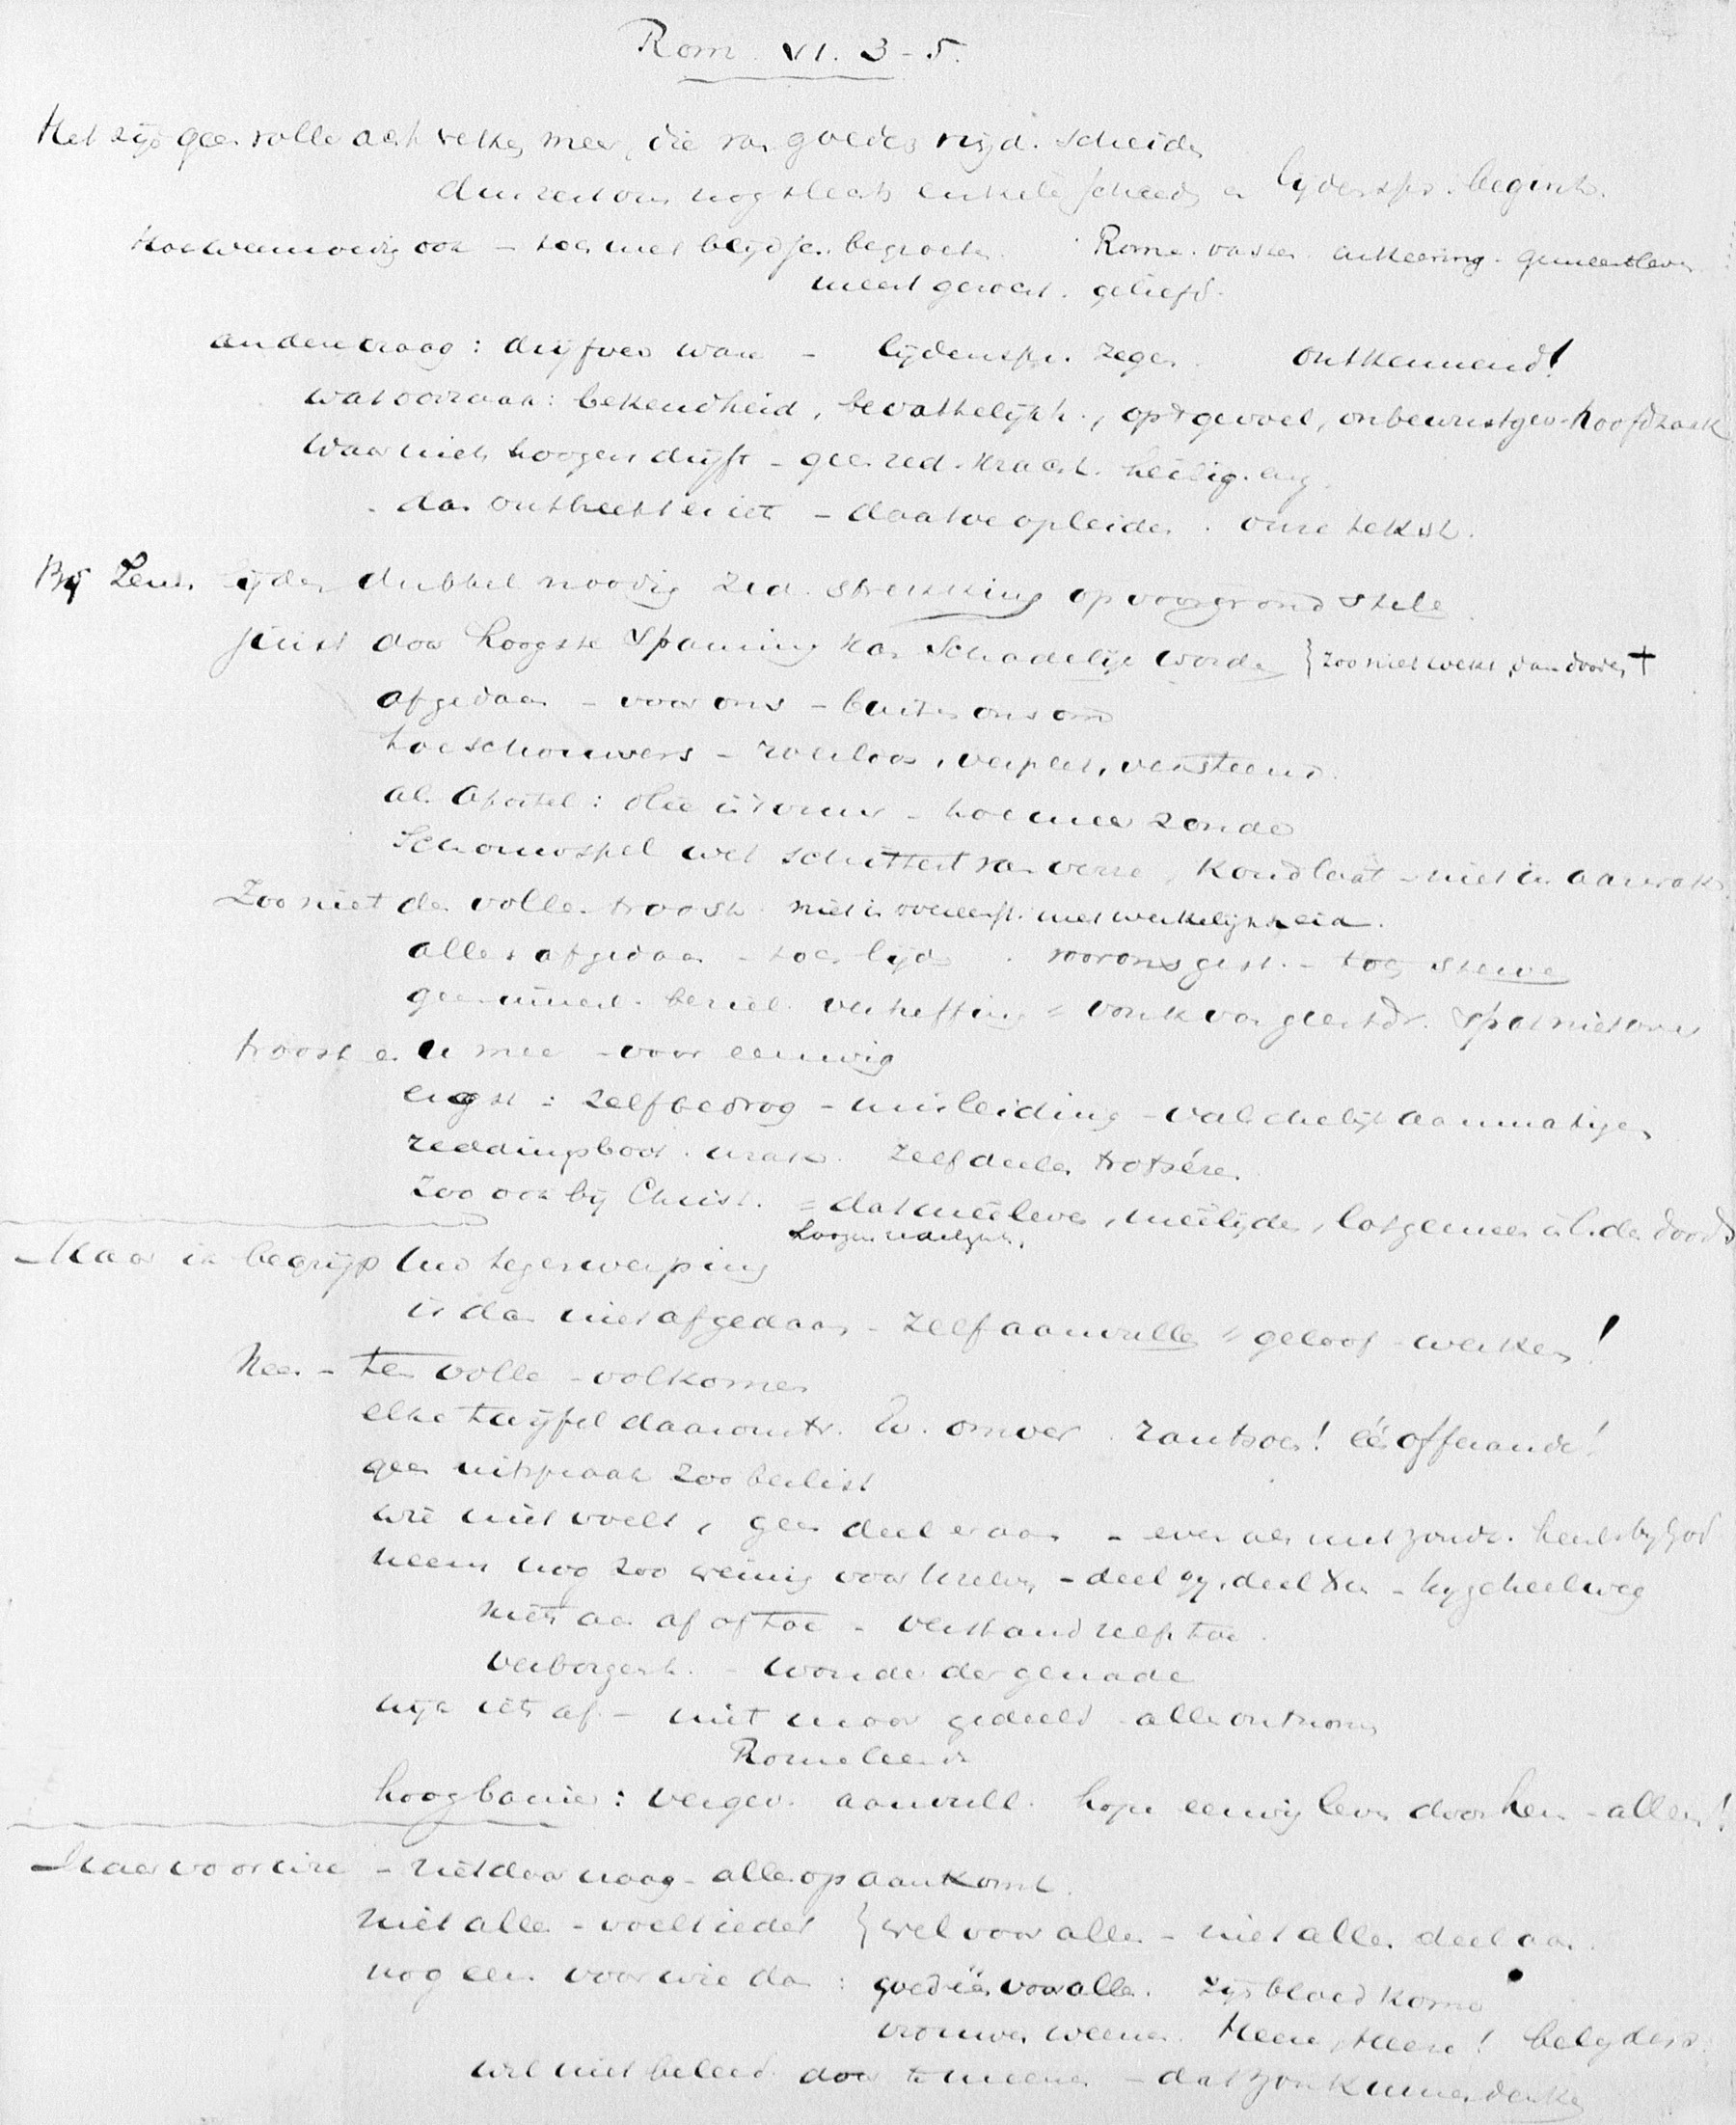 Rom. VI. 3-5.
Het zijn geen volle acht weken meer, die van goeden vrijd. scheiden
dus ons nog slechts enkele scheeds en lijdenspr. begint.
Hoe weemoedig ook – toch met blijdsch. begroeten. Rome. vasten. ontkeering. gemeenteleven
meest gezocht. geliefd.
andere vraag: drijfveer ware – lijdenspr. zegen. ontkennend!
wat oorzaak: bekendheid, bevattelijkh., op 't gevoel, onbewust gev. hoofdzaak
waar niet hooger drijft – geen zed. kracht. heilig.
dan ontbreekt er iets – daartoe opleiden. onze tekst.
Bij lijden dubbel noodig zed. strekking op voorgrond stelle
juist door hoogste spanning kan schadelijk worden } zoo niet wekt, dan dooden †
afgedaan – voor ons – buiten ons om
toeschouwers – roerloos, versteend.
al. Apostel: olie in 't vuur – hoe meer zonde
Schouwspel wel schittert van verre, koud laat – niet in aanrak.
Zoo niet de volle troost. niet in overeenst. met werkelijkheid.
alles afgedaan – toch lijden. voor ons gest. – toch sterve
geen verheffing = vonk van geestdr. spat niet over
troost er u mee – voor eeuwig
ergst: zelfbedrog – misleiding – valschelijk aanmatigen
reddingsboot. wrak. zelf deelen trotséren.
Zoo ook bij Christ. = dat meêleven, meêlijden, lotgemeen i. l. den dood
hooger
Maar ik begrijp uw tegenwerping
is dan niet afgedaan – zelf aanvullen = geloof – werken!
Neen – ten volle – volkomen
elke twijfel daaromtr. Ev. omver. rantsoen! éé offerande!
geen uitspraak zoo beslist
wie niet voelt, geen deel er aan – even als met zonde. bij God
neem nog zoo weinig voor – deel gij, deel hij – hij geheel weg
niets aan af of toe – verstand zelf toe.
verborgenh. – wonder der genade
wijk iets af – niet maar gedeeld – alles ontnomen
Rome leerde
hoog banier: vergev. aanvull. hope eeuwig leven door hem – alles!
Maar voor wie – niet daarnaar – alles op aankomt.
niet alle – voelt ieder } wel voor alle – niet allen deel aan.
nog een. voor wie dan: goed één voor alle. zijn bloed kome
vrouwen weenen. Heere, Heere! belijders.
wel niet beleed. door te meenen – dat zou kunnen denken